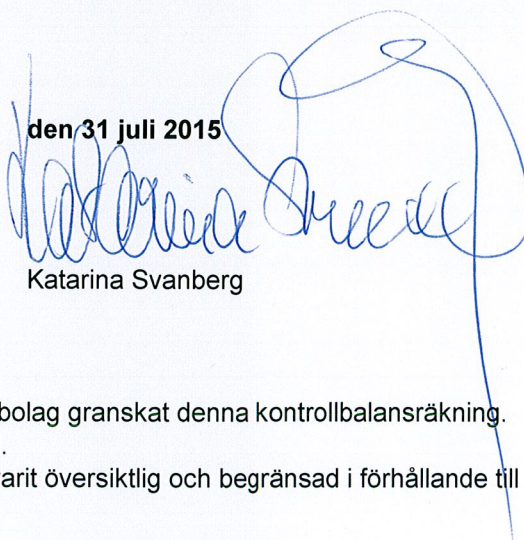 den 31 juli 2015
Katarina Svanberg
Katarina Svanberg
bolag granskat denna kontrollbalansräkning.
.
arit översiktlig och begränsad i förhållande till